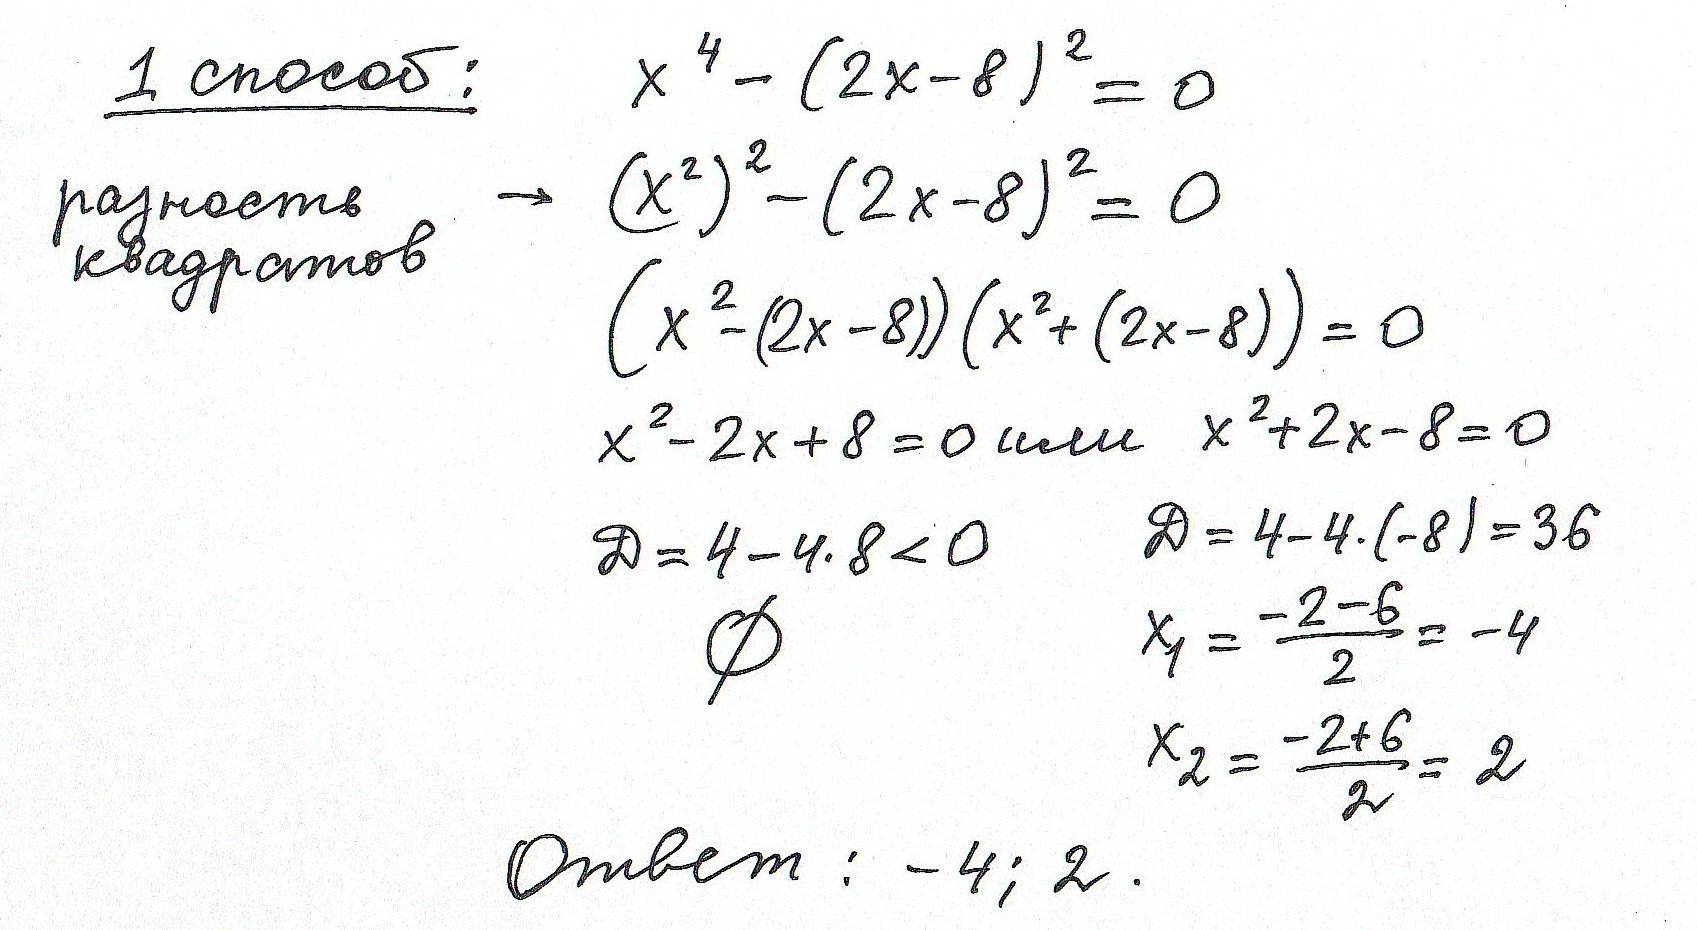 1 способ: x⁴ - (2x-8)² = 0
разность → (x²)² - (2x-8)² = 0
квадратов
(x² - (2x-8))(x² + (2x-8)) = 0
x² - 2x + 8 = 0 или x² + 2x - 8 = 0
Д = 4 - 4·8 < 0 Д = 4 - 4·(-8) = 36
∅ x₁ = (-2-6)/2 = -4
x₂ = (-2+6)/2 = 2
Ответ: -4; 2.